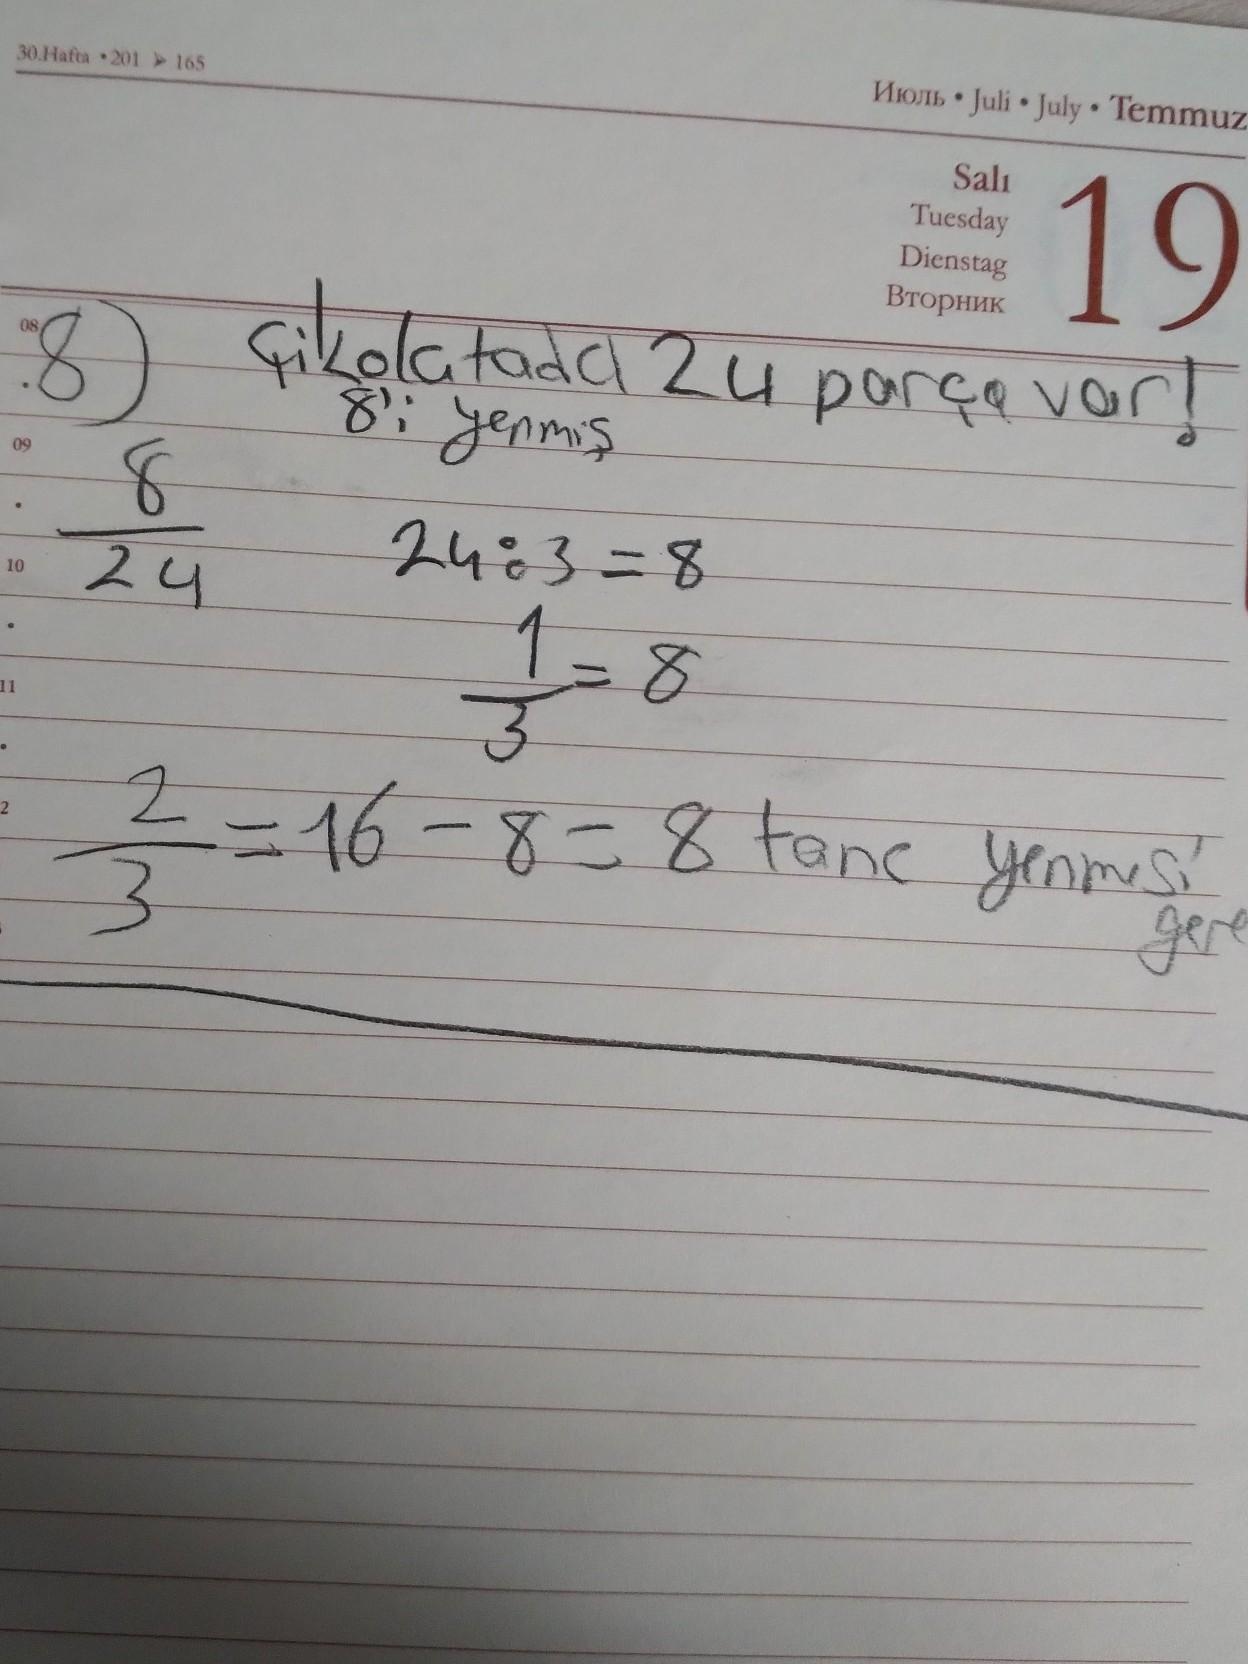 30.Hafta • 201 ➤ 165
Июль • Juli • July • Temmuz
Salı
Tuesday
Dienstag
Вторник
19
08
8) Çikolatada 24 parça var!
8'i yenmiş
09
8/24 24:3=8
10
1/3=8
11
2/3=16-8=8 tane yenmesi
gere